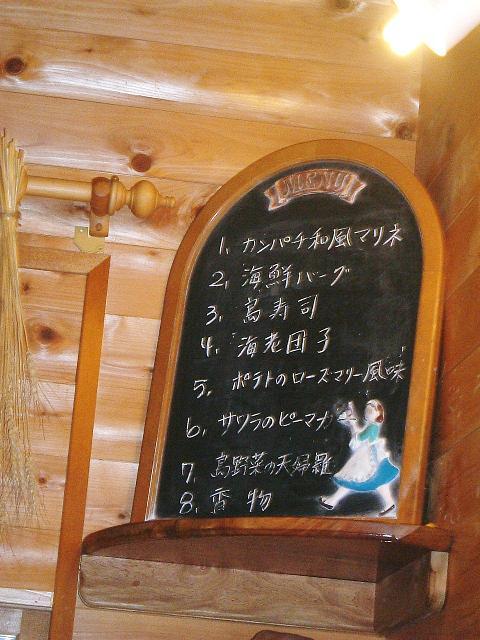 MENU
1. カンパチ和風マリネ
2. 海鮮バーグ
3. 島寿司
4. 海老団子
5. ポテトのローズマリー風味
6. サワラのピーマ
7. 島野菜の天婦羅
8. 香物